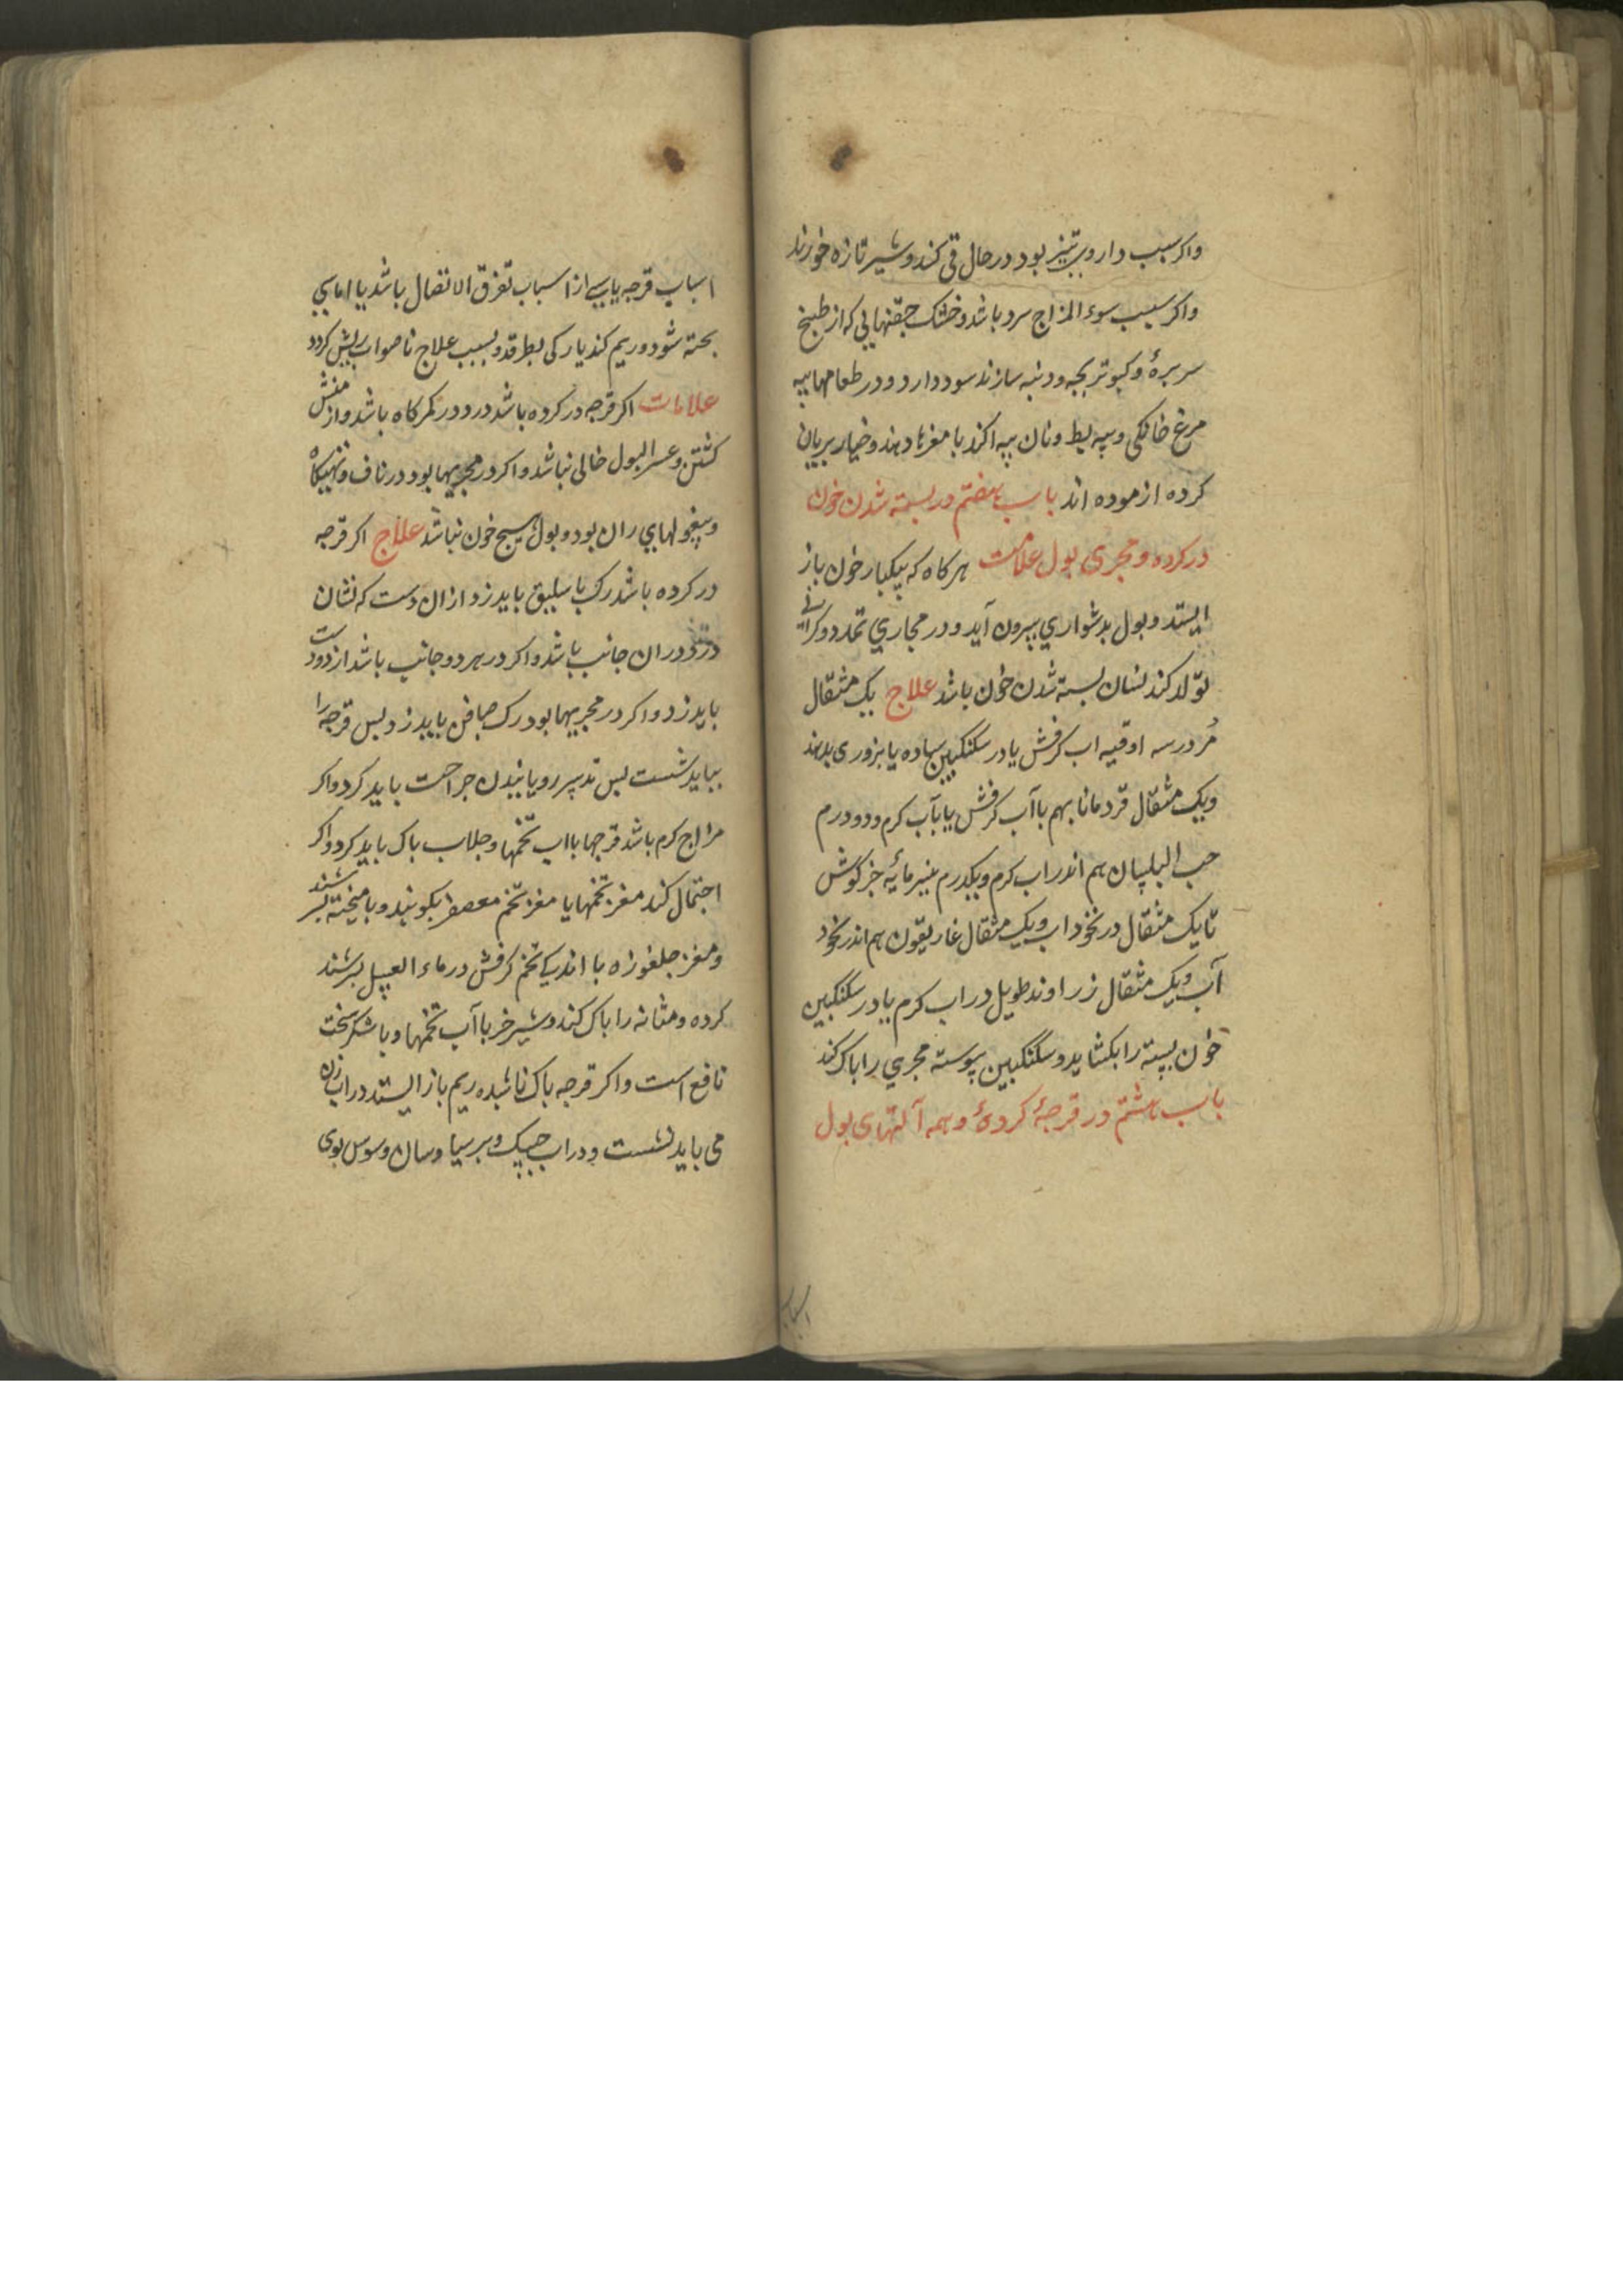 واکر سبب داروی تیز بود در حال قی کند و شیر تازه خورند
واکر سبب سوء المزاج سرد باشد و خشک حقنهایی که از طبیخ
سر برهٔ و کبوتر بچه و دنبه سازند سود دارد و در طعامها پیه
مرغ خانکی و پیه بط و نان پیه اکند با مغزها دهند و خیار بریان
کرده ازموده اند باب هفتم در بسته شدن خون
در کرده و مجری بول علامت هرکاه که بیکبار خون باز
ایستد و بول بدشواری بیرون آید و در مجاری تمدد و کرانی
تولد کند نشان بسته شدن خون باشد علاج یک مثقال
مُر در سه اوقیه اب کرفش یا در سکنکبین ساده یا بزوری بدهند
و یک مثقال قردمانا بهم با آب کرفش یا بآب کرم و دو درم
حب البلسان هم اندر اب کرم و یکدرم پنیر مائیه خرکوش
تا یک مثقال در نخود اب و یک مثقال غاریقون هم اندر نخود
آب و یک مثقال زراوند طویل در اب کرم یا در سکنکبین
خون بسته را بکشاید و سکنکبین پیوسته مجری را باک کند
باب هشتم در قرحهٔ کردهٔ و همه آلتهای بول
اسباب
اسباب قرحه یا سببی از اسباب تفرق الاتصال باشد یا اماسی
بخته شود و ریم کند یا رکی بطرقد و بسبب علاج ناصواب ریش کردد
علامات اکر قرحه در کرده باشد درد در کمرکاه باشد و از منش
کشتن و عسر البول خالی نباشد واکر در مجریها بود در ناف و تهیکاه
و بیغولهای ران بود و بول هیچ خون نباشد علاج اکر قرحه
در کرده باشد رک باسلیق باید زد از ان دست که نشان
درد دران جانب باشد واکر در هر دو جانب باشد از دو دست
باید زد واکر در مجریها بود رک صافن باید زد بس قرحه را
بباید شست بس تدبیر رویانیدن جراحت باید کرد واکر
مزاج کرم باشد قرحها بااب تخمها و جلاب باک باید کرد واکر
احتمال کند مغز تخمها یا مغز تخم معصفر بکوبند و با میبخته بسرشند
و مغز جلغوزه با اندکی تخم کرفش در ماء العسل بسرشند
کرده و مثانه را باک کند و شیر خر با آب تخمها و با شکر سخت
نافع است واکر قرحه باک ناشده ریم باز ایستد دراب زن
می باید نشست و دراب خسک و برسیاوسان و سوس بوی